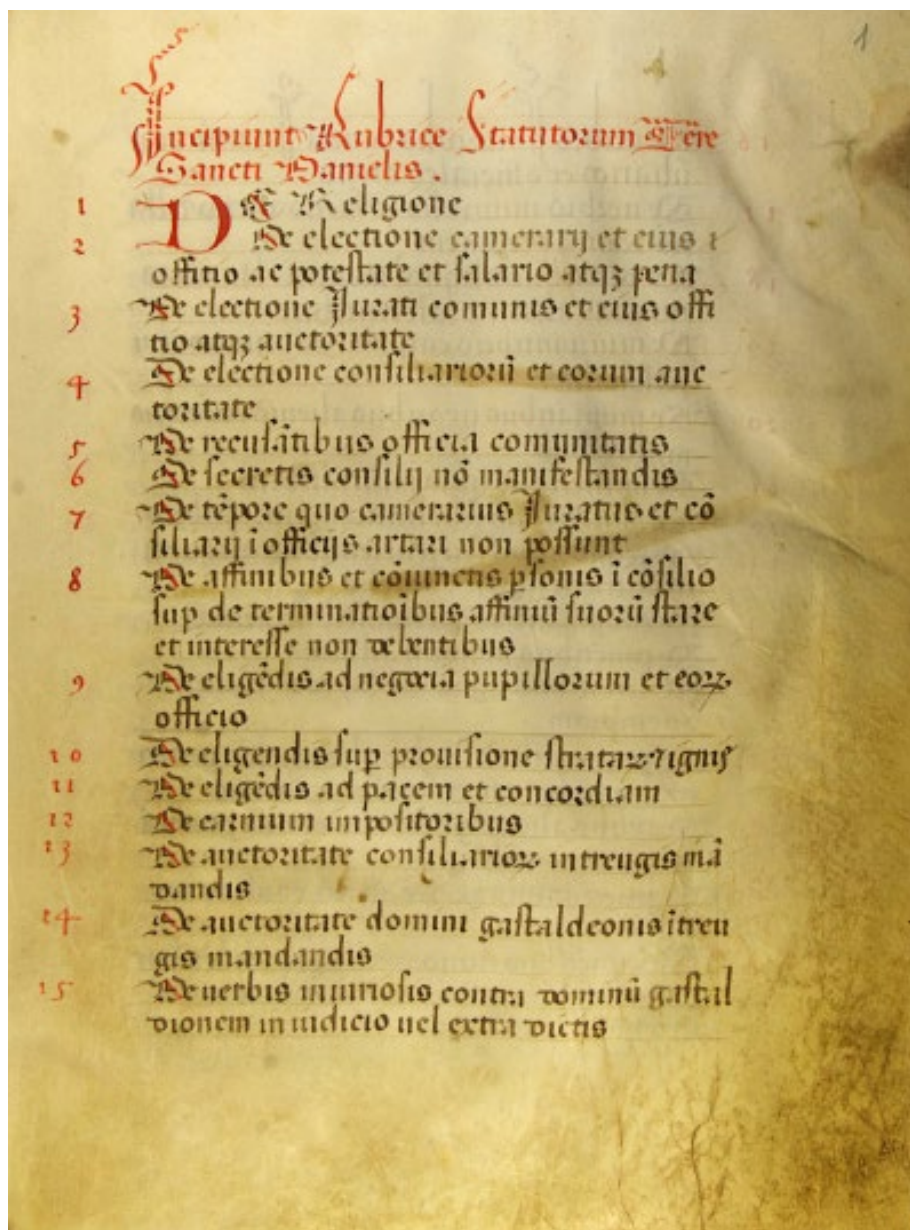 1
Incipiunt Rubrice Statutorum Tēre
Sancti Danielis .
1 DE Religione
2 De electione camerarij et eius
offitio ac potestate et salario atqꝫ pena
3 De electione Jurati comunis et eius offi
tio atqꝫ auctoritate
4 De electione consiliariorū et eorum auc
toritate
5 De recusātibus officia comunitatis
6 De secretis consilij nō manifestandis
7 De tēpore quo camerarius Juratus et cō
siliarij ī officijs artari non possunt
8 De affinibus et cōiunctis ꝑsonis ī cōsilio
suꝑ de terminatoībus affiniū suorū stare
et interesse non debentibus
9 De eligēdis ad negocia pupillorum et eoꝝ
officio
10 De eligendis suꝑ prouisione strataꝝ ⁊ ignis
11 De eligēdis ad pacem et concordiam
12 De carnium impositoribus
13 De auctoritate consiliarioꝝ in treugis mā
dandis
14 De auctoritate domini gastaldeonis ī treu
gis mandandis
15 De uerbis iniuriosis contra dominū gastal
dionem in iudicio uel extra dictis